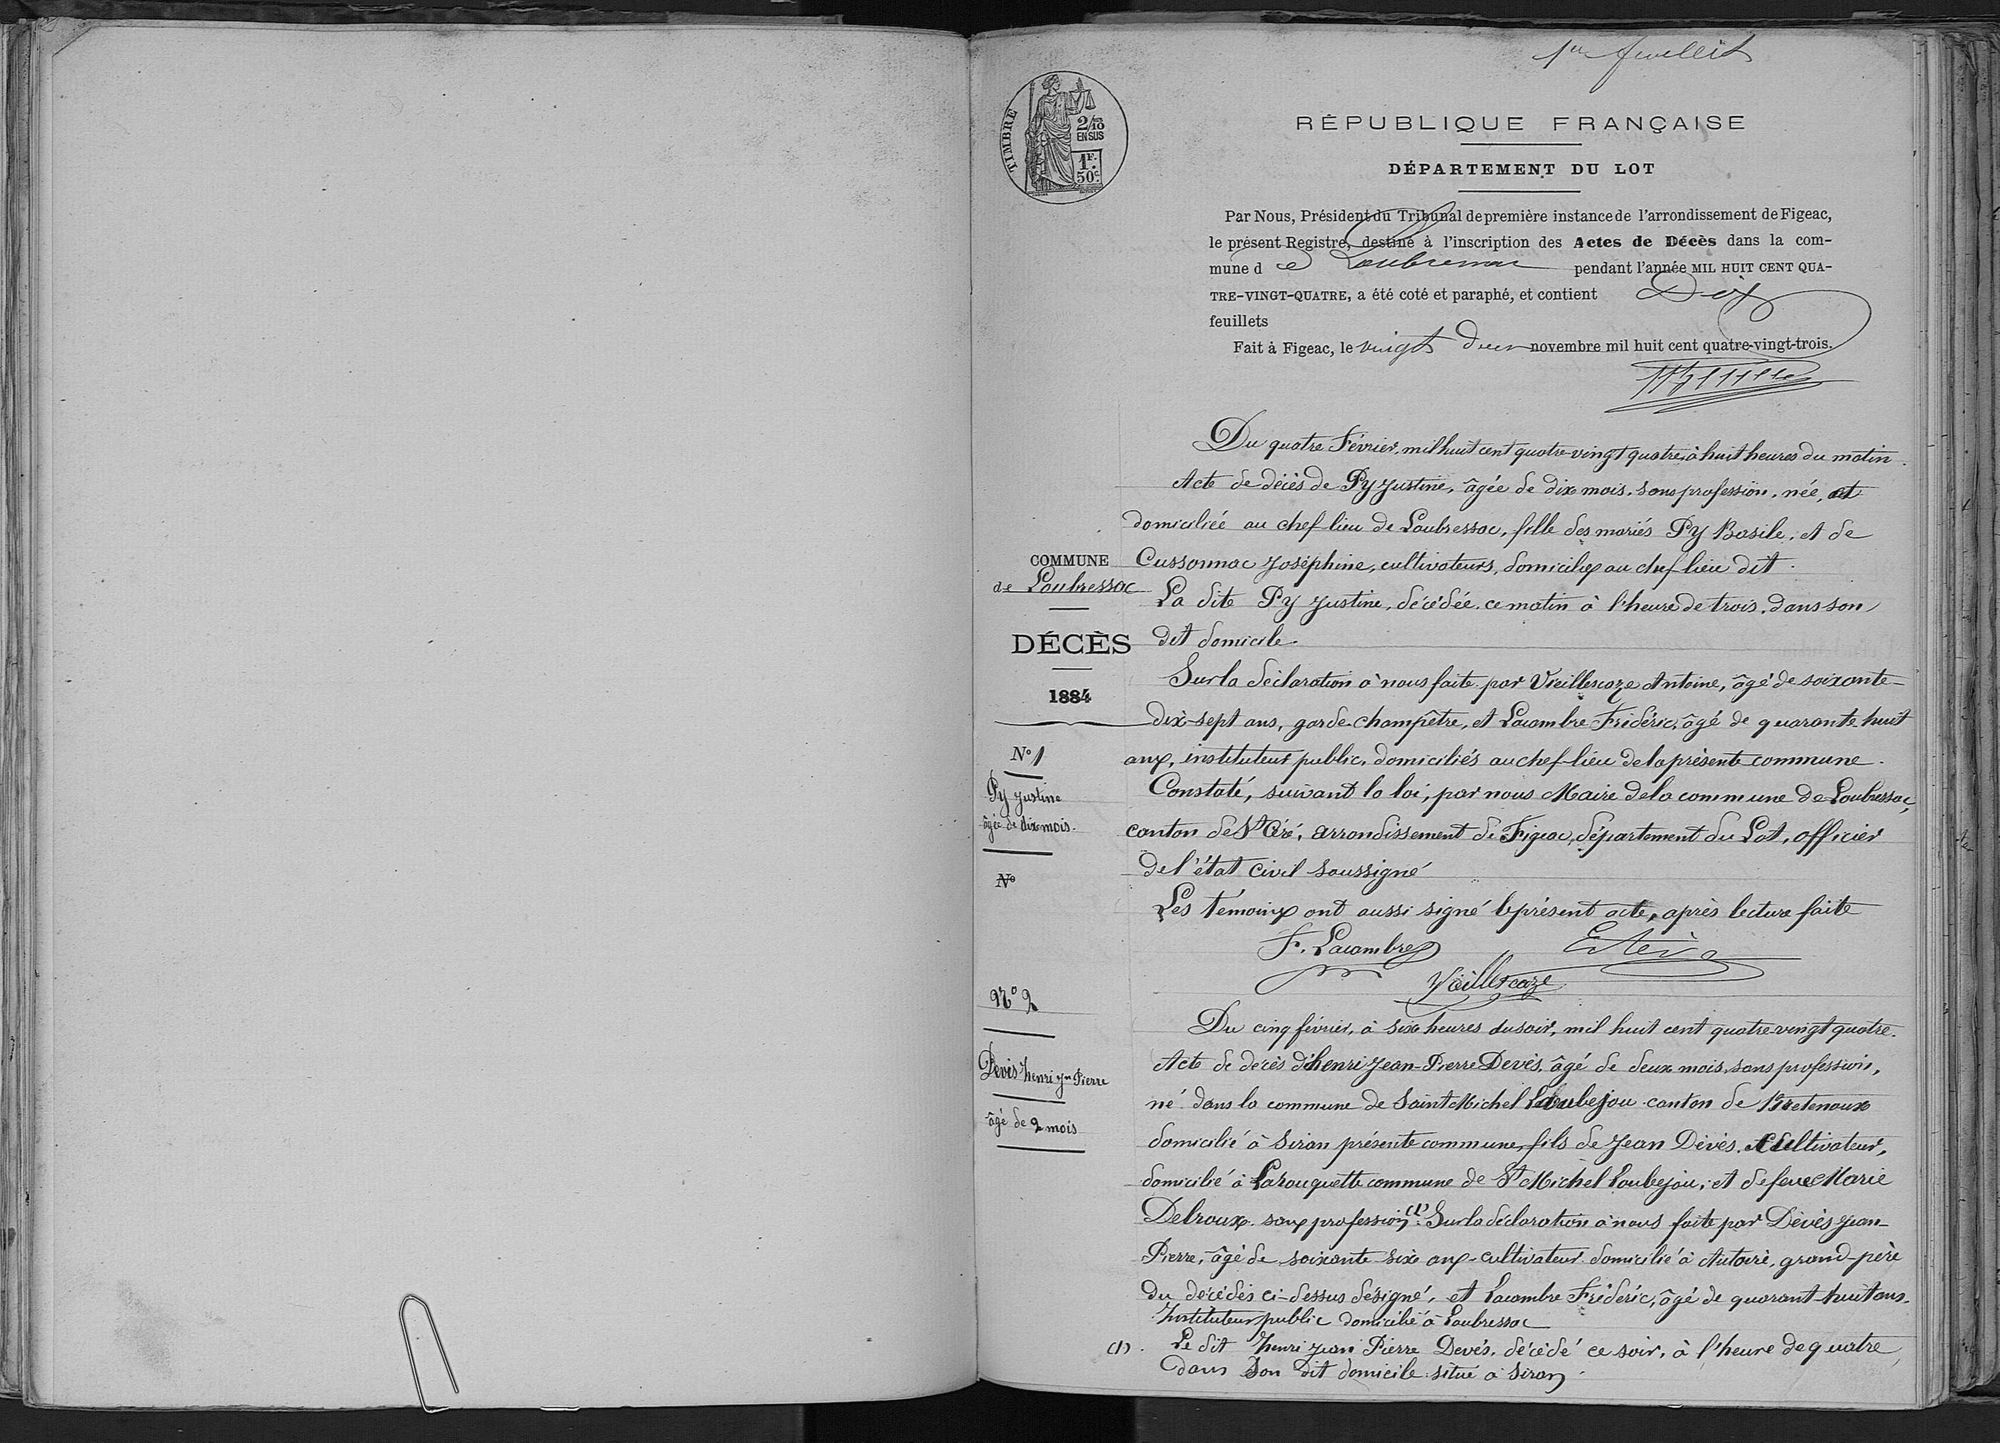 1er feuillet
TIMBRE
2/10
EN SUS
1F.
50c.
RÉPUBLIQUE FRANÇAISE
DÉPARTEMENT DU LOT
Par Nous, Président du Tribunal de première instance de l'arrondissement de Figeac,
le présent Registre, destiné à l'inscription des Actes de Décès dans la com-
mune d e Loubressac pendant l'année MIL HUIT CENT QUA-
TRE-VINGT-QUATRE, a été coté et paraphé, et contient Dix
feuillets
Fait à Figeac, le vingt deux novembre mil huit cent quatre-vingt-trois.
Du quatre Février, mil huit cent quatre-vingt quatre, à huit heures du matin.
Acte de décès de Py Justine, âgée de dix mois, sans profession, née, et
domiciliée au chef lieu de Loubressac, fille des mariés Py Basile, et de
Cussonnac Joséphine, cultivateurs, domiciliés au chef lieu dit.
La dite Py Justine, décédée ce matin à l'heure de trois, dans son
dit domicile.
Sur la déclaration à nous faite par Vieillescaze Antoine, âgé de soixante-
dix-sept ans, garde-champêtre, et Lacambre Fridéric, âgé de quarante huit
ans, instituteur public, domiciliés au chef-lieu de la présente commune.
Constaté, suivant la loi, par nous Maire de la commune de Loubressac,
canton de St Céré, arrondissement de Figeac, département du Lot, officier
de l'état civil soussigné
Les témoins ont aussi signé le présent acte, après lecture faite
F. Lacambre
Vieillescaze
COMMUNE
de Loubressac
DÉCÈS
1884
No 1
Py Justine
âgée de dix mois.
No
No 2
Devès henri Jn Pierre
âgé de 2 mois
Du cinq février, à six heures du soir, mil huit cent quatre-vingt quatre.
Acte de décès d'henri Jean-Pierre Devès, âgé de deux mois, sans profession,
né dans la commune de Saint Michel Loubejou canton de Bretenoux
domicilié à Siran présente commune, fils de Jean Devès, cultivateur,
domicilié à Larouquette commune de St Michel Loubejou, et de feue Marie
Delroux sans profession (1). Sur la déclaration à nous faite par Devès Jean-
Pierre, âgé de soixante six ans, cultivateur domicilié à Autoire, grand-père
du décédés ci-dessus désigné, et Lacambre Fridéric, âgé de quarant-huit ans.
Instituteur public domicilié à Loubressac
(1). Le dit henri Jean Pierre Devès, décédé ce soir, à l'heure de quatre,
dans son dit domicile situé à Siran.